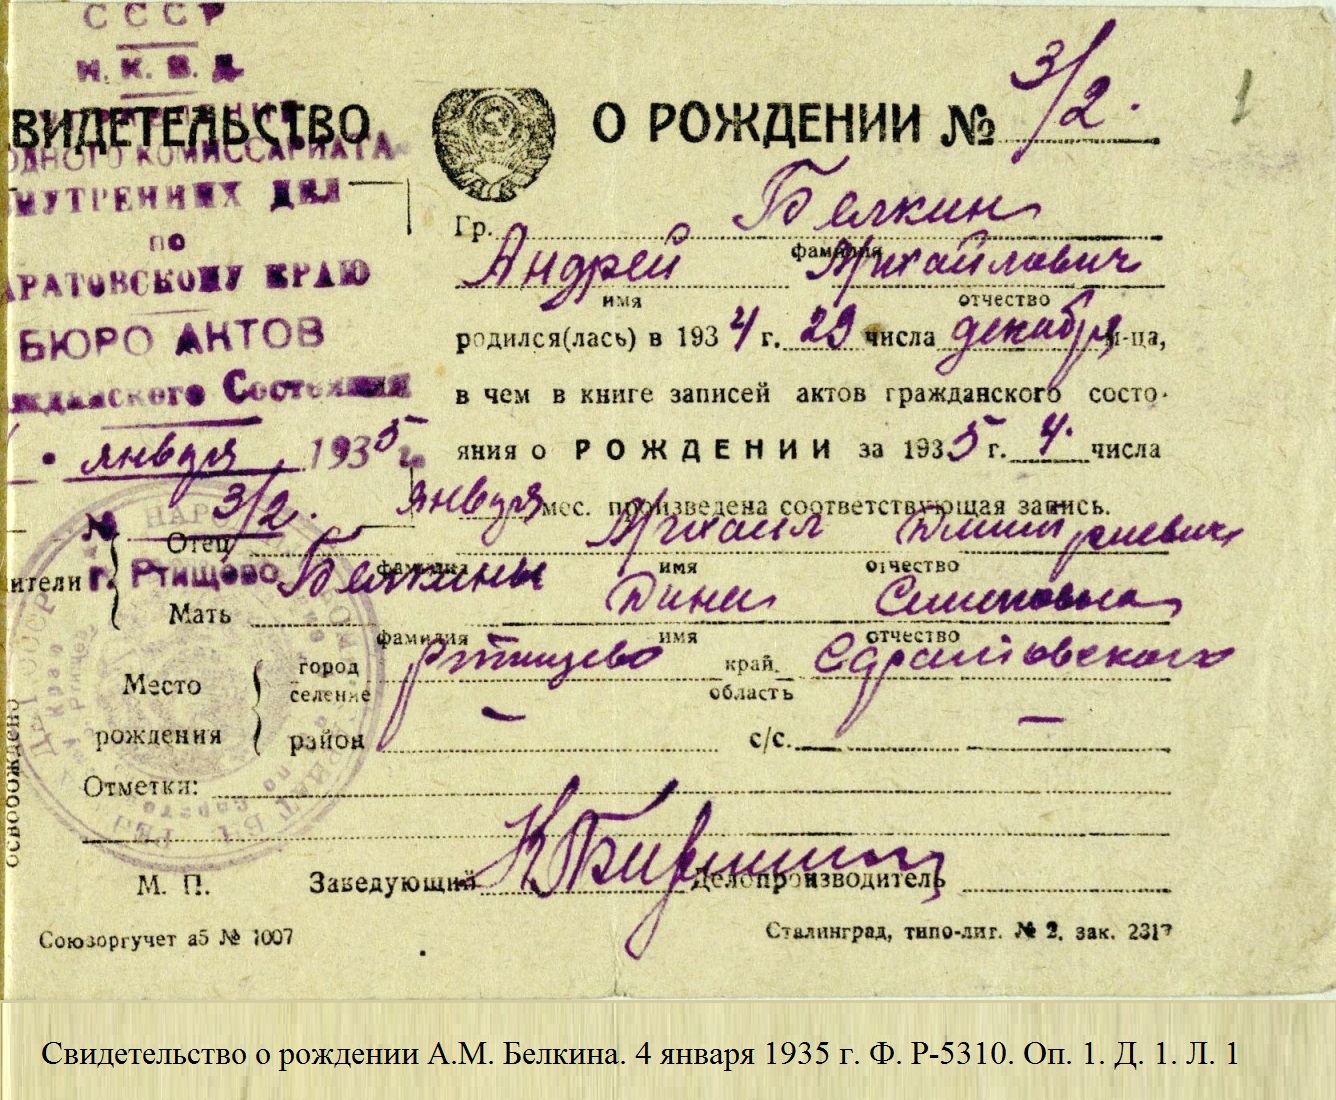 СССР
Н. К. В. Д.
ВИДЕТЕЛЬСТВО О РОЖДЕНИИ № 3/2.
1
ОДНОГО КОМИССАРИАТА
НУТРЕННИХ ДЕЛ
ПО
АРАТОВСКОМУ КРАЮ
БЮРО АКТОВ
жданского Состояния
января 1935 г.
№ 3/2.
г. Ртищево
Гр. Белкин
фамилия
Андрей Михайлович
имя отчество
родился(лась) в 1934 г. 29 числа декабря м-ца,
в чем в книге записей актов гражданского состо-
яния о РОЖДЕНИИ за 1935 г. 4. числа
января мес. произведена соответствующая запись.
Отец Михаил Дмитриевич
ители Белкины фамилия имя отчество
Мать Дина Семеновна
фамилия имя отчество
Место город Ртищево край Саратовского
селение область
рождения район – с/с. –
Отметки:
освобождено
М. П. Заведующий Делопроизводитель
Союзоргучет а5 № 1007 Сталинград, типо-лиг. № 2, зак. 2317
Свидетельство о рождении А.М. Белкина. 4 января 1935 г. Ф. Р-5310. Оп. 1. Д. 1. Л. 1